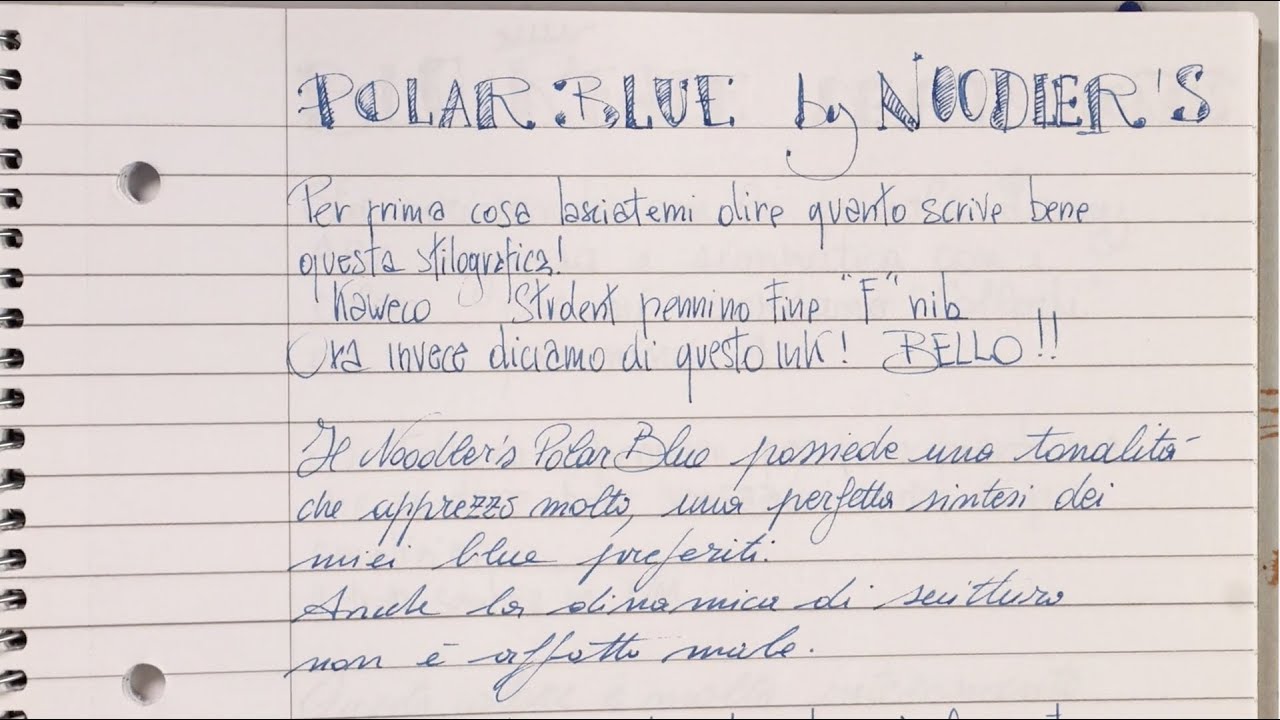 POLAR BLUE by NOODLER'S
Per prima cosa lasciatemi dire quanto scrive bene
questa stilografica!
Kaweco Student pennino Fine "F" nib
Ora invece diciamo di questo ink! BELLO!!
Il Noodler's Polar Blue possiede una tonalità
che apprezzo molto, una perfetta sintesi dei
miei blue preferiti.
Anche la dinamica di scrittura
non è affatto male.